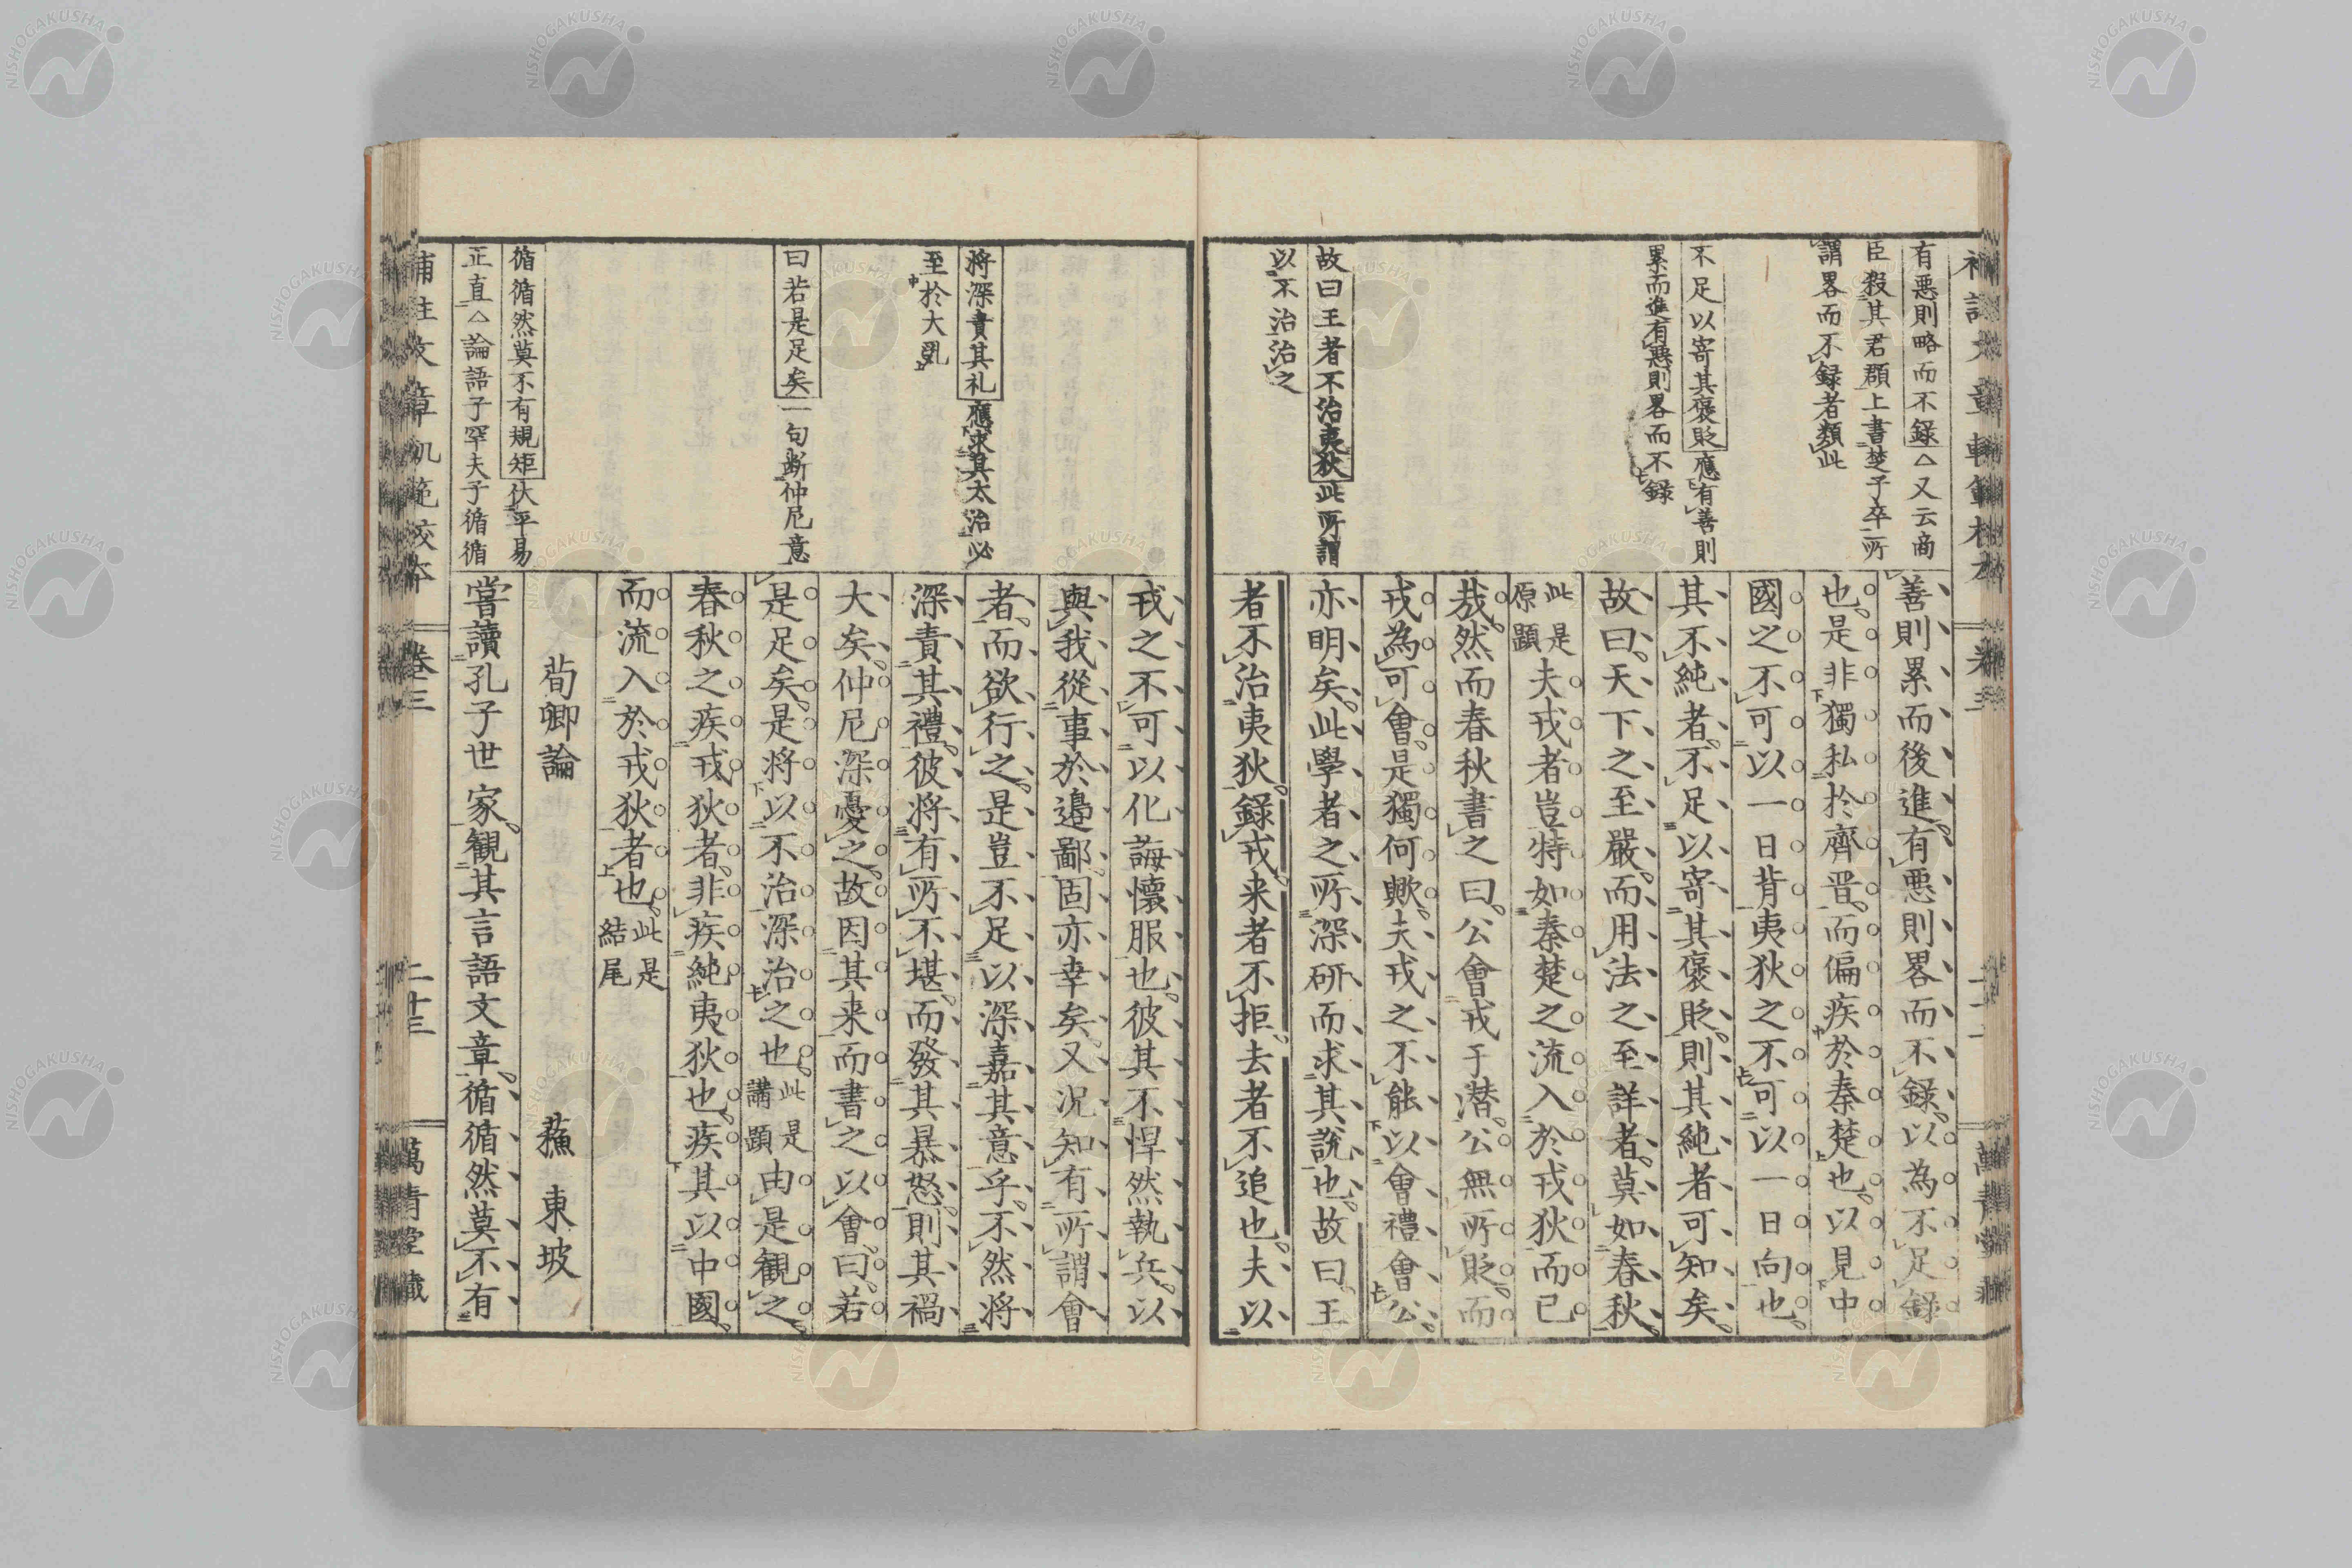 有悪則略而不録△又云商
臣殺其君頵上書楚子卒所
謂畧而不録者類此
不足以寄其褒貶應有善則
累而進有悪則畧而不録
故曰王者不治夷狄此所謂
以不治治之
善則累而後進有悪則畧而不録以為不足録
也是非獨私於齊晋而偏疾於秦楚也以見中
國之不可以一日背夷狄之不可以一日向也
其不純者不足以寄其褒貶則其純者可知矣
故曰天下之至嚴而用法之至詳者莫如春秋
此是原題夫戎者豈特如秦楚之流入於戎狄而已
哉然而春秋書之曰公會戎于潜公無所貶而
戎為可會是獨何歟夫戎之不能以會禮會公
亦明矣此學者之所深研而求其說也故曰王
者不治夷狄録戎来者不拒去者不追也夫以
將深責其礼應求其太治必
至於大乱
曰若是足矣一句断仲尼意
循循然莫不有規矩伏平易
正直△論語子罕夫子循循
戎之不可以化誨懷服也彼其不悍然執兵以
與我從事於邊鄙固亦幸矣又况知有所謂會
者而欲行之是豈不足以深嘉其意乎不然将
深責其禮彼将有所不堪而發其暴怒則其禍
大矣仲尼深憂之故因其来而書之以會曰若
是足矣是将以不治深治之也此是講題由是觀之
春秋之疾戎狄者非疾純夷狄也疾其以中國
而流入於戎狄者也此是結尾
荀卿論　蘓東坡
嘗讀孔子世家觀其言語文章循循然莫不有
補註文章軌範校本　卷三　二十三　萬青堂藏